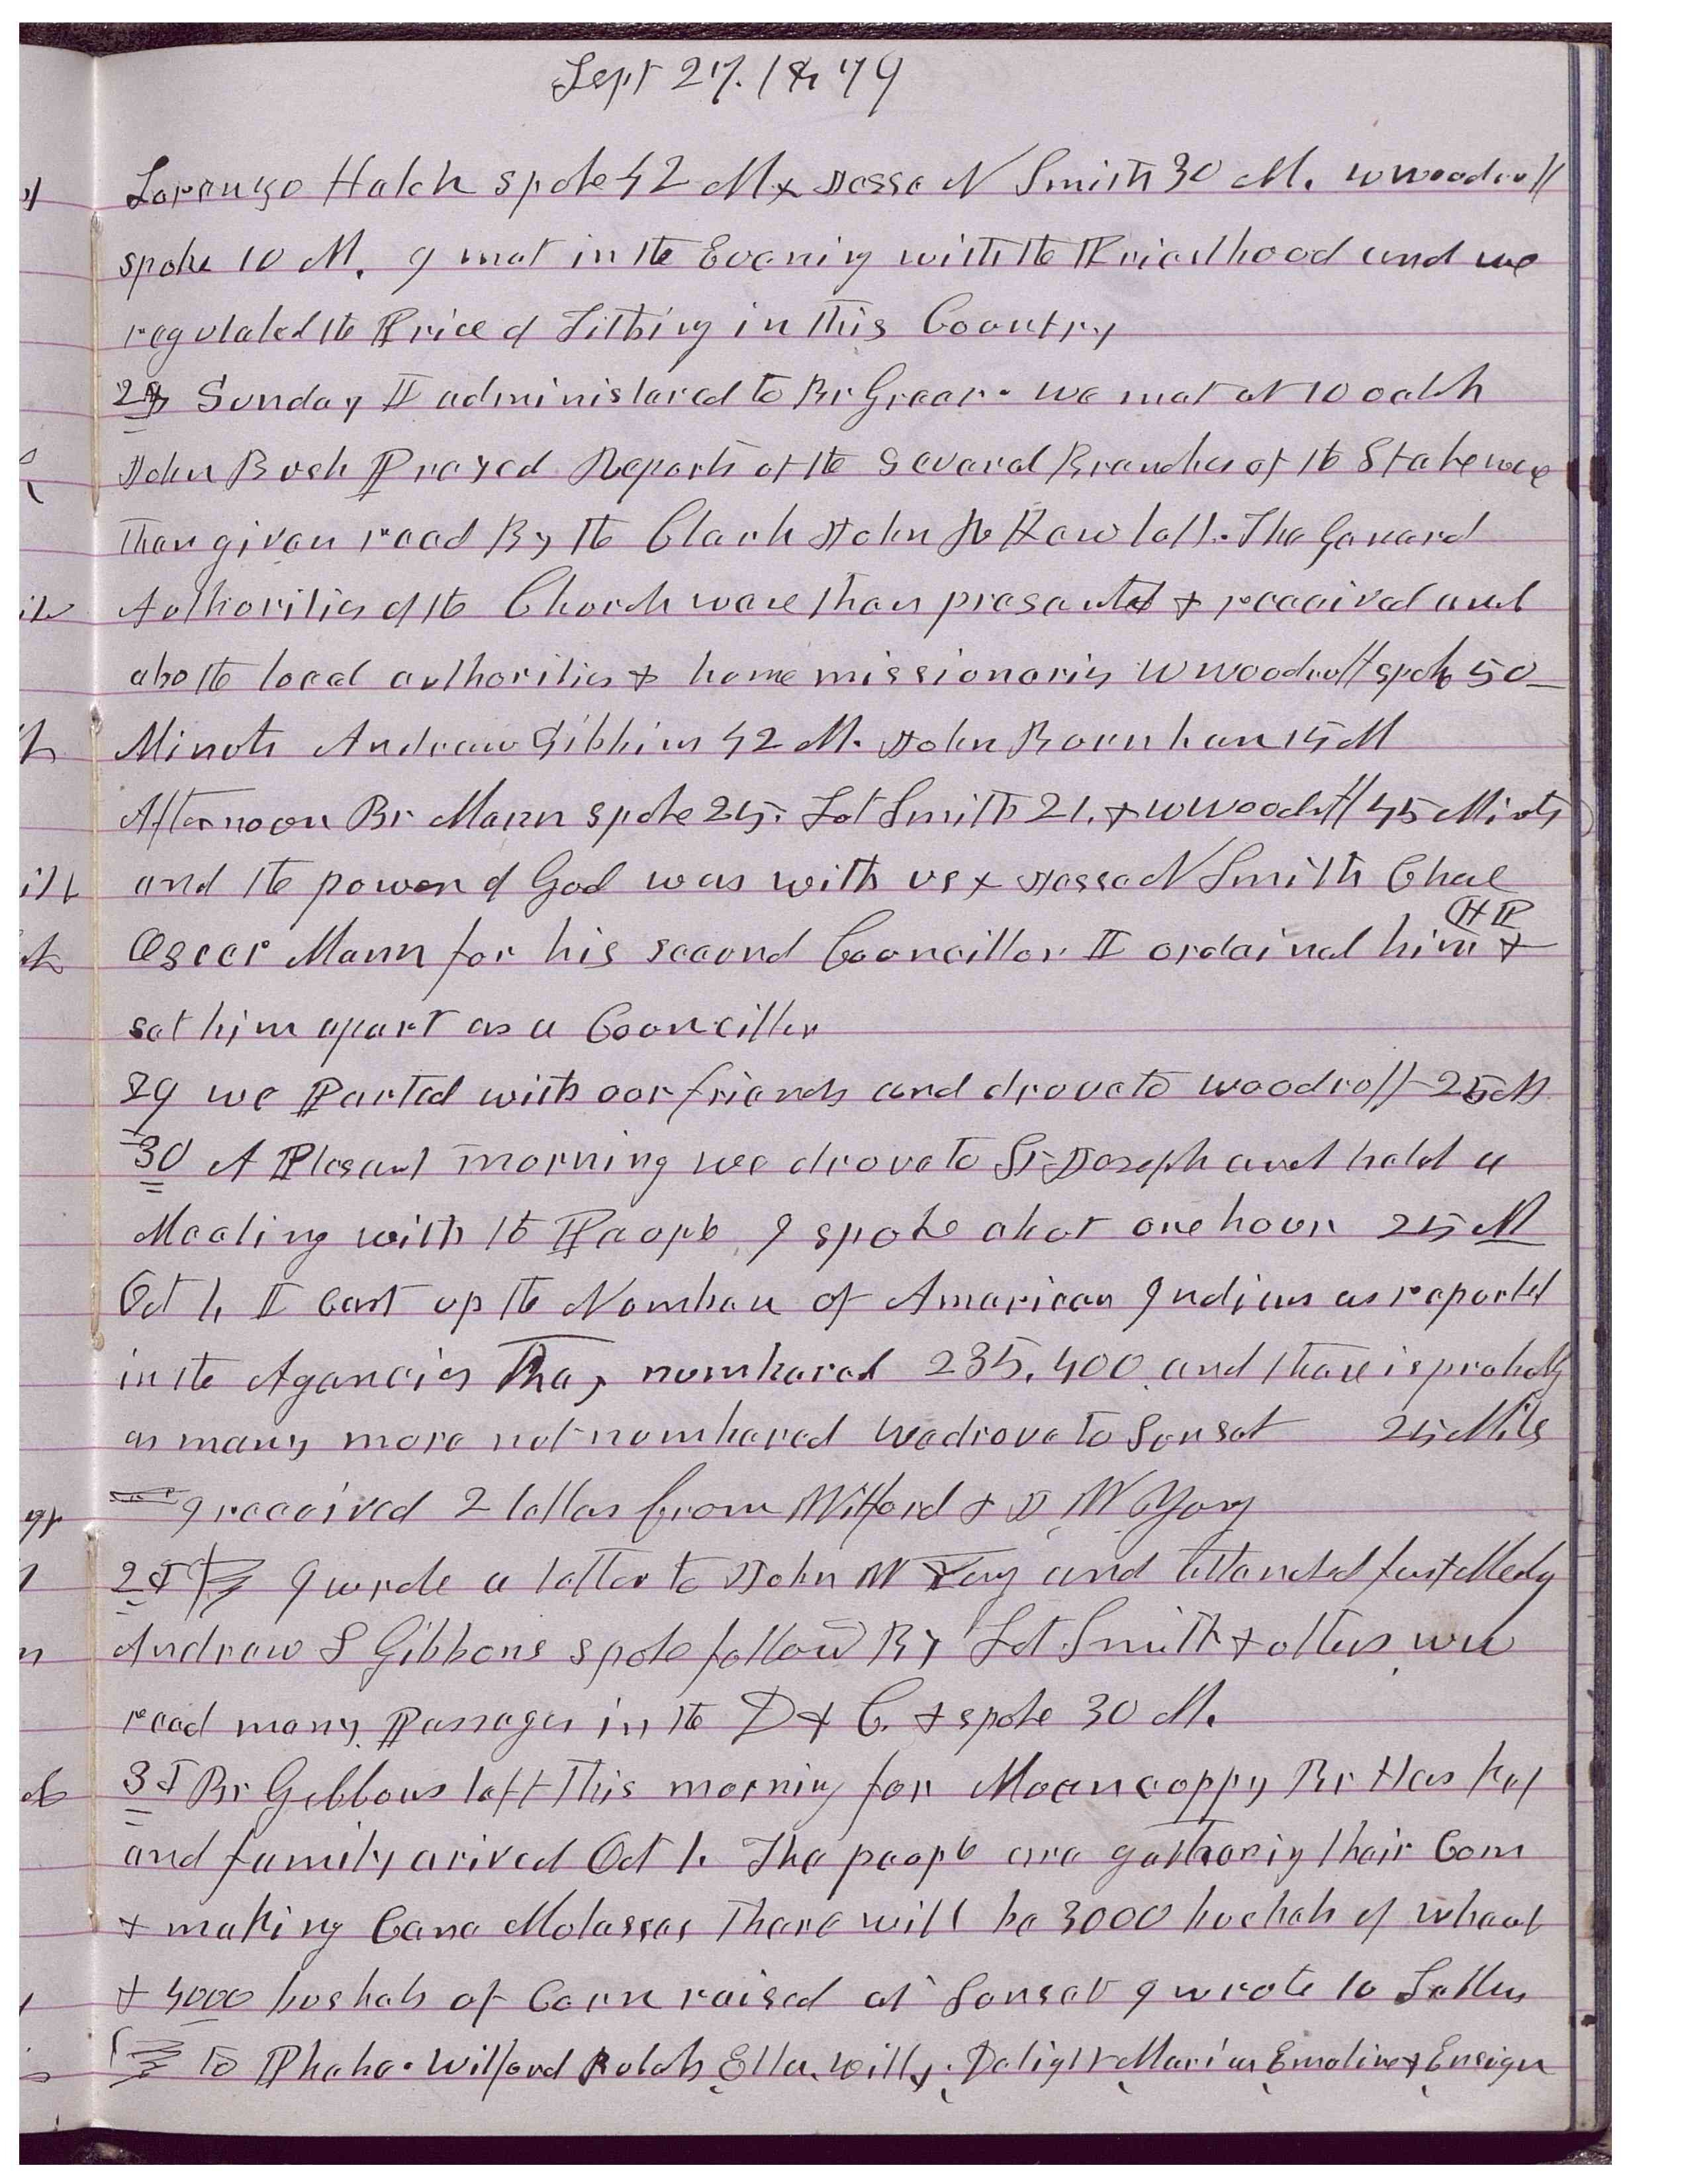 Sept 27. 1879
Lorenzo Hatch spoke 42 M & Jesse N Smith 30 M. W Woodruff
spoke 10 M. I met in the Evening with the Priesthood and we
regulated the Price of Tithing in this Country
28 Sunday I administered to Br Greer. we met at 10 oclk
John Bush Prayed Reports of the several Branches of the Stake were
then given read By the Clerk John R Hawlatt. The General
Authorities of the Church were then presented & received and
also the local authorities & home missionaries W Woodruff spoke 50
Minuts Andrew Gibbins 42 M. John Bournham 15 M
Afternoon Br Mann spoke 25. Lot Smith 21. & W Woodruff 45 Minuts
and the power of God was with us & Jesse N Smith Chose
Oscar Mann for his second Councillor. I ordained him HP &
set him apart as a Councillor
29 we Parted with our friends and drove to Woodruff 25 M
30 A Plesant morning we drove to St Joseph and held a
Meeting with the People I spoke about one hour 25 M
Oct 1. I Cast up the Number of American Indians as reported
in the Agencies They numbered 235,400 and there is probably
as many more not numbered we drove to Sunset 25 Miles
I received 2 letters from Wilford & J W Yong
2d I wrote a letter to John W Yong and Attended fast Meeting
Andrew S Gibbons spoke followd By Lot Smith & others WW
read many Passages in the D & C. & spoke 30 M.
3d Br Gibbons left this morning for Moancoppy Br Haskel
and family arived Oct 1. The people are gathering their Corn
& making Cane Molasses There will be 3000 bushels of wheat
& 4000 bushels of Corn raised at Sunset I wrote 10 Letters
to Phebe. Wilford Bulah Ella, Willy. Delight Marion Emeline & Ensign